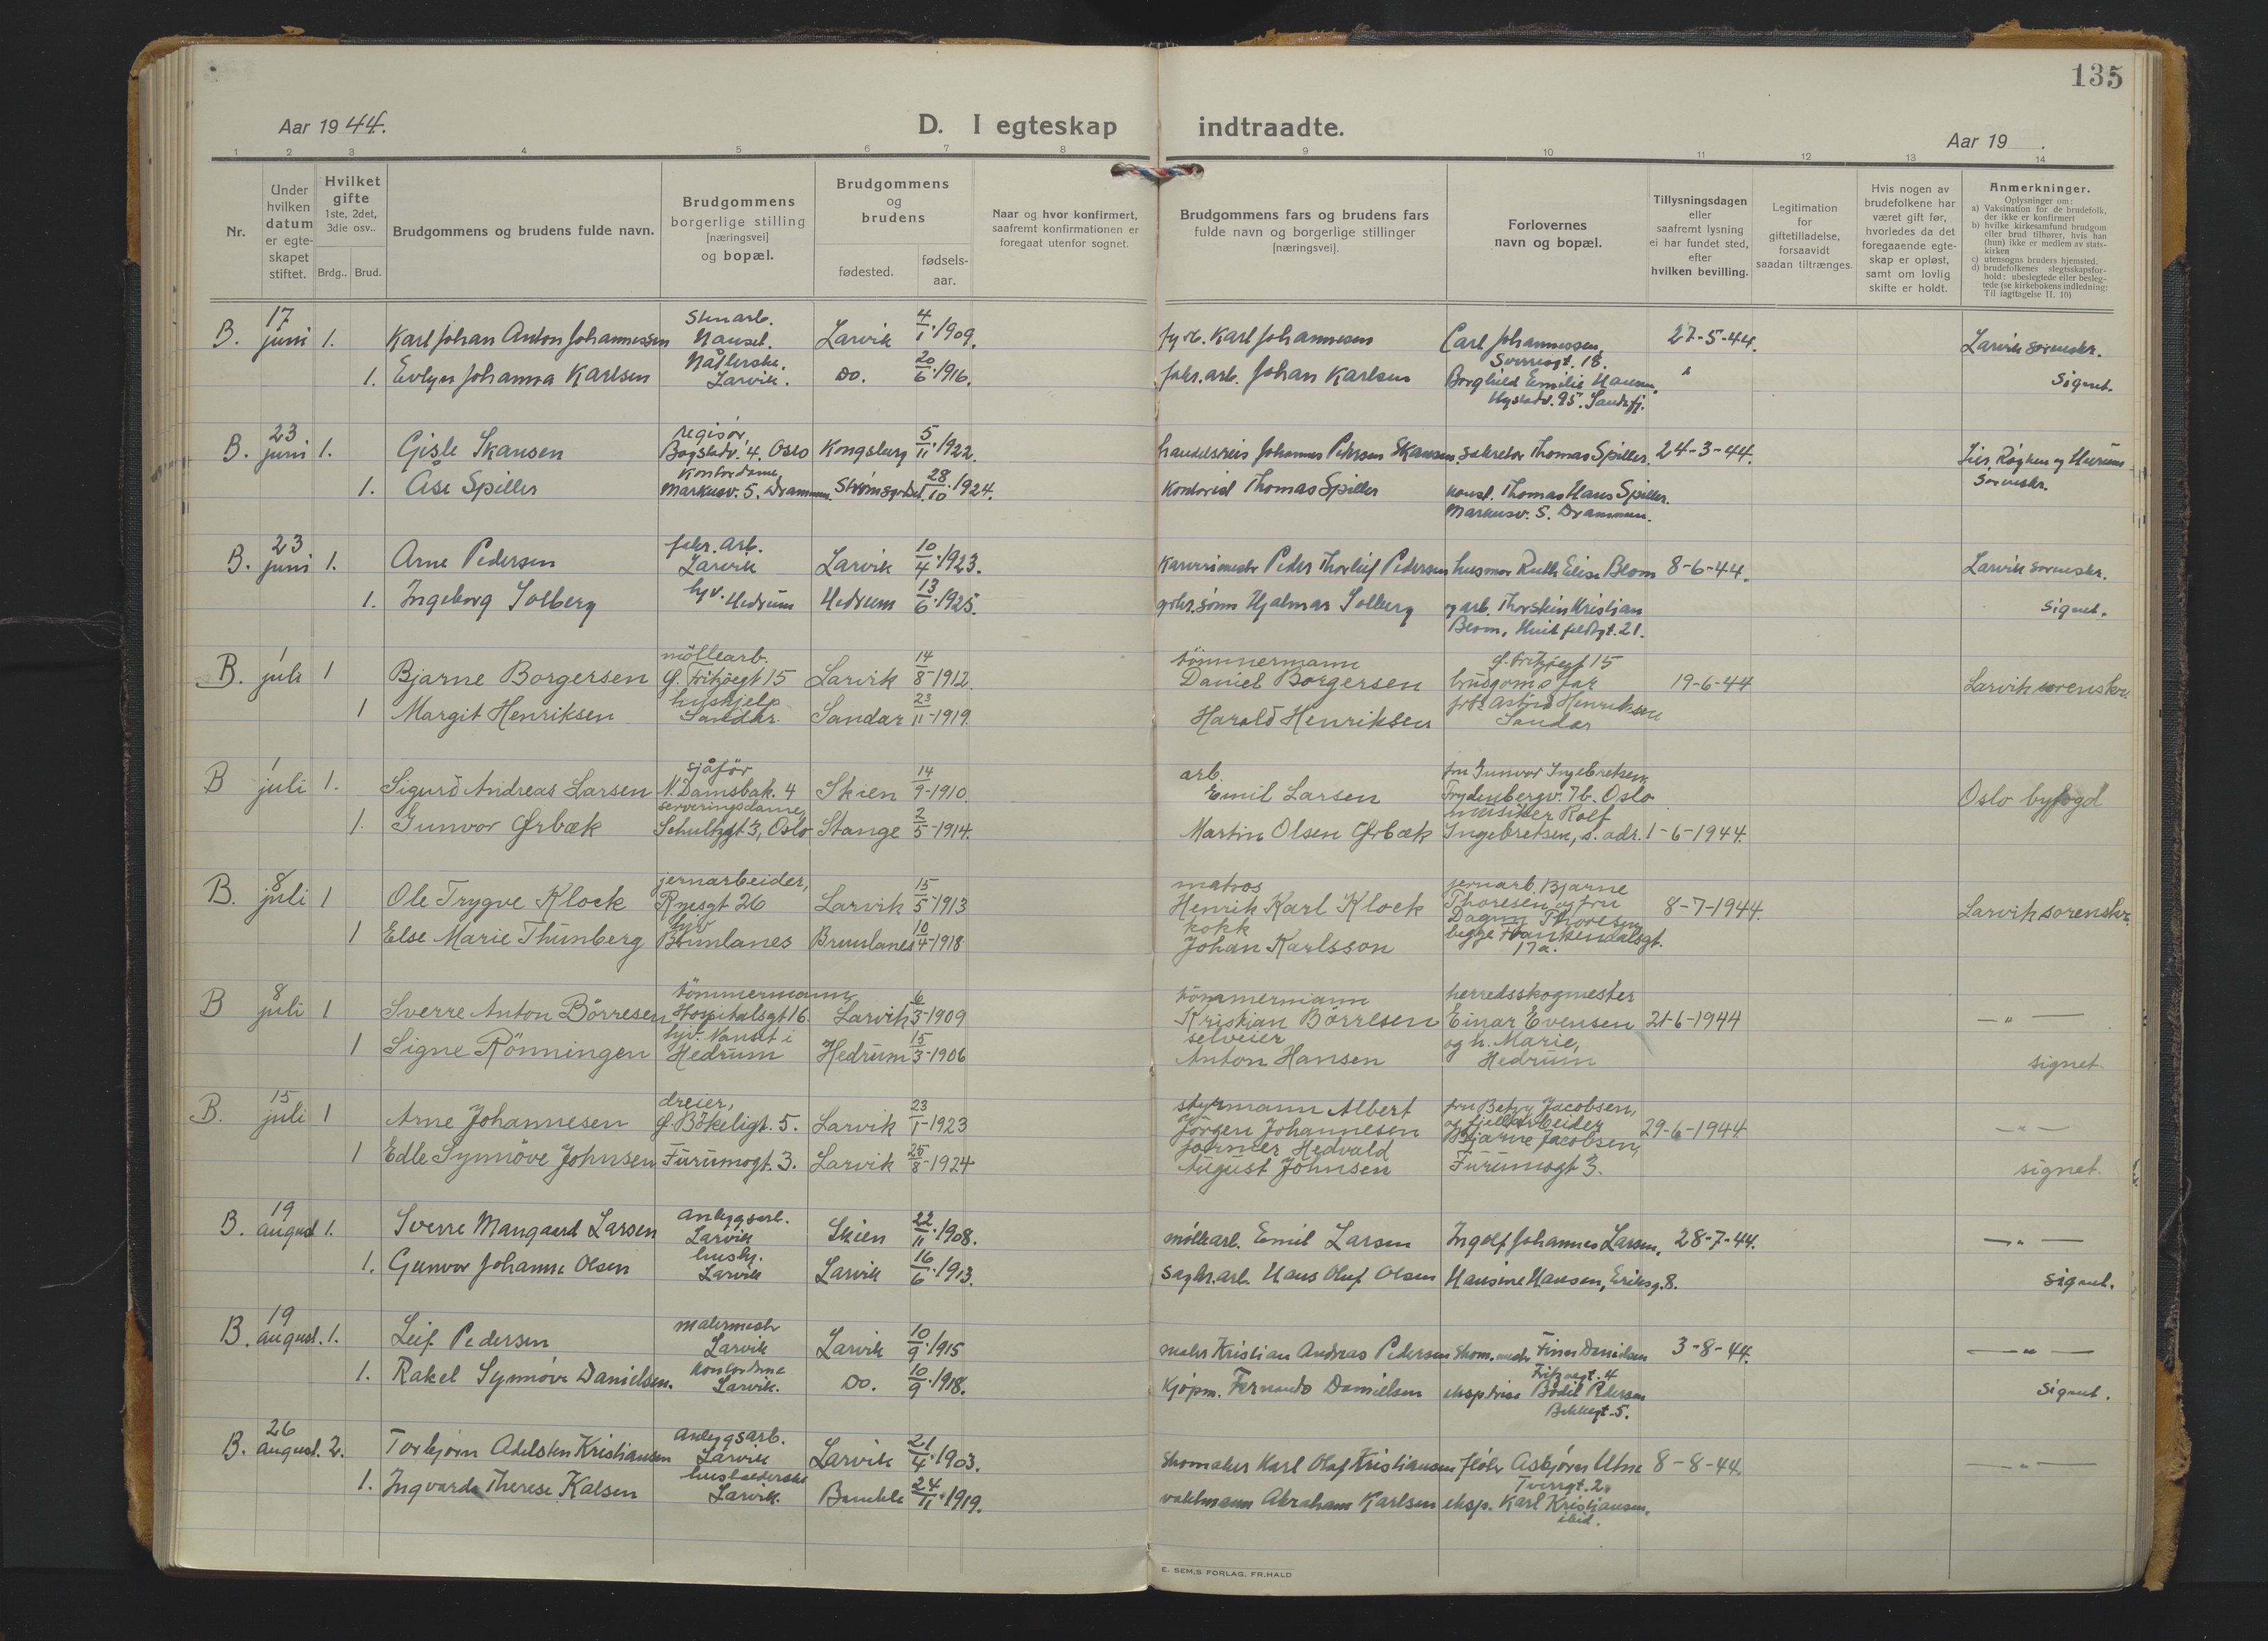 135
Aar 1944.
D. I egteskap indtraadte.
Aar 19 .
1 2 3 4 5 6 7 8 9 10 11 12 13 14
Nr.
Under hvilken datum er egte- skapet stiftet.
Hvilket gifte 1ste, 2det, 3die osv..
Brdg.. Brud.
Brudgommens og brudens fulde navn.
Brudgommens borgerlige stilling [næringsvei] og bopæl.
Brudgommens og brudens
fødested. fødsels- aar.
Naar og hvor konfirmert, saafremt konfirmationen er foregaat utenfor sognet.
Brudgommens fars og brudens fars fulde navn og borgerlige stillinger [næringsvei].
Forlovernes navn og bopæl.
Tillysningsdagen eller saafremt lysning ei har fundet sted, efter hvilken bevilling.
Legitimation for giftetilladelse, forsaavidt saadan tiltrænges.
Hvis nogen av brudefolkene har været gift før, hvorledes da det foregaaende egte- skap er opløst, samt om lovlig skifte er holdt.
Anmerkninger.
Oplysninger om:
a) Vaksination for de brudefolk, der ikke er konfirmert
b) hvilke kirkesamfund brudgom eller brud tilhører, hvis han (hun) ikke er medlem av stats- kirken
c) utensogns bruders hjemsted,
d) brudefolkenes slegtsskapsfor- hold: ubeslegtede eller besleg- tede (se kirkebokens indledning: Til iagttagelse II. 10)
B. 17 juni 1. Karl Johan Anton Johannessen Stenarb. Nanset. Larvik 4/1.1909. Karl Johannesen Carl Johannessen, Sverresgt. 18. 27-5-44. Larvik sorenskr.
1. Evelyn Johanna Karlsen Larvik. do. 20/6.1916. fabr.arb. Johan Karlsen Borghild Emilie Hansen, 95. Sandefj. " signet.
B. 23 juni 1. Gisle Skansen regisør Bogstadv. 4. Oslo Kongsberg 5/11.1922. handelsreis Johannes Petersen Skansen. sekretær Thomas Spiller. 24-3-44. Lier, Røyken og Hurums sorenskr.
1. Åse Spiller Kontordame, Markusv. 5. Drammen. Strømsgodset 28/10.1924. Kontorist Thomas Spiller Thomas Hans Spiller. Markusv. 5. Drammen.
B. 23 juni 1. Arne Pedersen fabr. arb. Larvik Larvik 10/4.1923. Peder Thorleif Pedersen husmor Ruth Elise Blom 8-6-44. Larvik sorenskr.
1. Ingeborg Solberg hjv. Hedrum Hedrum 13/6.1925. Hjalmar Solberg og arb. Thorstein Kristian Blom, Huitfeldtgt. 21. signet.
B. 1 juli 1 Bjarne Borgersen möllearb. Ø. Fritzöegt 15 Larvik 14/8-1912. tömmermann Daniel Borgersen Ø. Fritzöegt 15 brudgoms far 19-6-44 Larvik sorenskr.
1 Margit Henriksen hushjelp Sandar Sandar 23/11-1919. Harald Henriksen frk. Astrid Henriksen Sandar
B 1 juli 1. Sigurd Andreas Larsen sjåför N. Damsbak. 4 Skien 14/9-1910. arb. Emil Larsen fru Gunvor Ingebretsen Frydenbergv. 7b. Oslo Oslo byfogd
1. Gunvor Ørbæk serveringsdame, Schultzgt 3, Oslo Stange 2/5-1914. Martin Olsen Ørbæk musiker Rolf Ingebretsen, s. adr. 1-6-1944.
B. 8 juli 1 Ole Trygve Klock jernarbeider, Ryesgt 26 Larvik 15/5-1913 matros Henrik Karl Klock jernarb. Bjarne Thoresen og fru 8-7-1944. Larvik sorenskr.
1 Else Marie Thunberg hjv Brunlanes Brunlanes 10/4-1918 kokk Johan Karlsson Dagny Thoresen, begge Frankendalsgt. 17a.
B 8 juli 1 Sverre Anton Börresen tömmermann, Hospitalsgt 16. Larvik 6/3-1909 tömmermann Kristian Börresen herredsskogmester Einar Evensen 21-6-1944 — " —
1 Signe Rönningen hjv. Nanset i Hedrum Hedrum 15/3-1906 selveier Anton Hansen og h. Marie, Hedrum signet
B. 15 juli 1 Arne Johannesen dreier, Ø. Bökeligt. 5. Larvik 23/1-1923 styrmann Albert Jörgen Johannesen fru Betzy Jacobsen, 29-6-1944 — " —
1 Edle Synnöve Johnsen Furumogt. 3. Larvik 26/8-1924 Hedvald August Johnsen Bjarne Jacobsen, Furumogt 3. signet.
B. 19 august 1. Sverre Mangaard Larsen anleggsarb. Larvik Skien 22/11.1908. møllearb. Emil Larsen Ingolf Johannes Larsen, 28-7-44. — " —
1. Gunvor Johanne Olsen hushj. Larvik Larvik 16/6.1913. Hans Oluf Olsen Hansine Hansen, Eriksg. 8. signet.
B. 19 august. 1. Leif Pedersen malermestr Larvik Larvik 10/9.1915 maler Kristian Andreas Pedersen skom.mestr Finn Danielsen Fritzøegt. 4 3-8-44. — " —
1. Rakel Synnöve Danielsen. Kontordme Larvik. do. 10/9.1918. Kjøpm. Fernando Danielsen ekspetrise Bodil Pedersen Bekkegt. 5. signet.
B. 26 august. 2. Torbjørn Adelsten Kristiansen anleggsarb. Larvik Larvik 21/4.1903. Skomaker Karl Olaf Kristiansen Asbjørn Utne Tverrgt. 2. 8-8-44. — " —
1. Ingvarda Therese Kalsen Larvik. Bamble 24/11.1919. vaktmann Abraham Karlsen eksp. Karl Kristiansen, ibid.
E. SEM,S FORLAG, FR.HALD